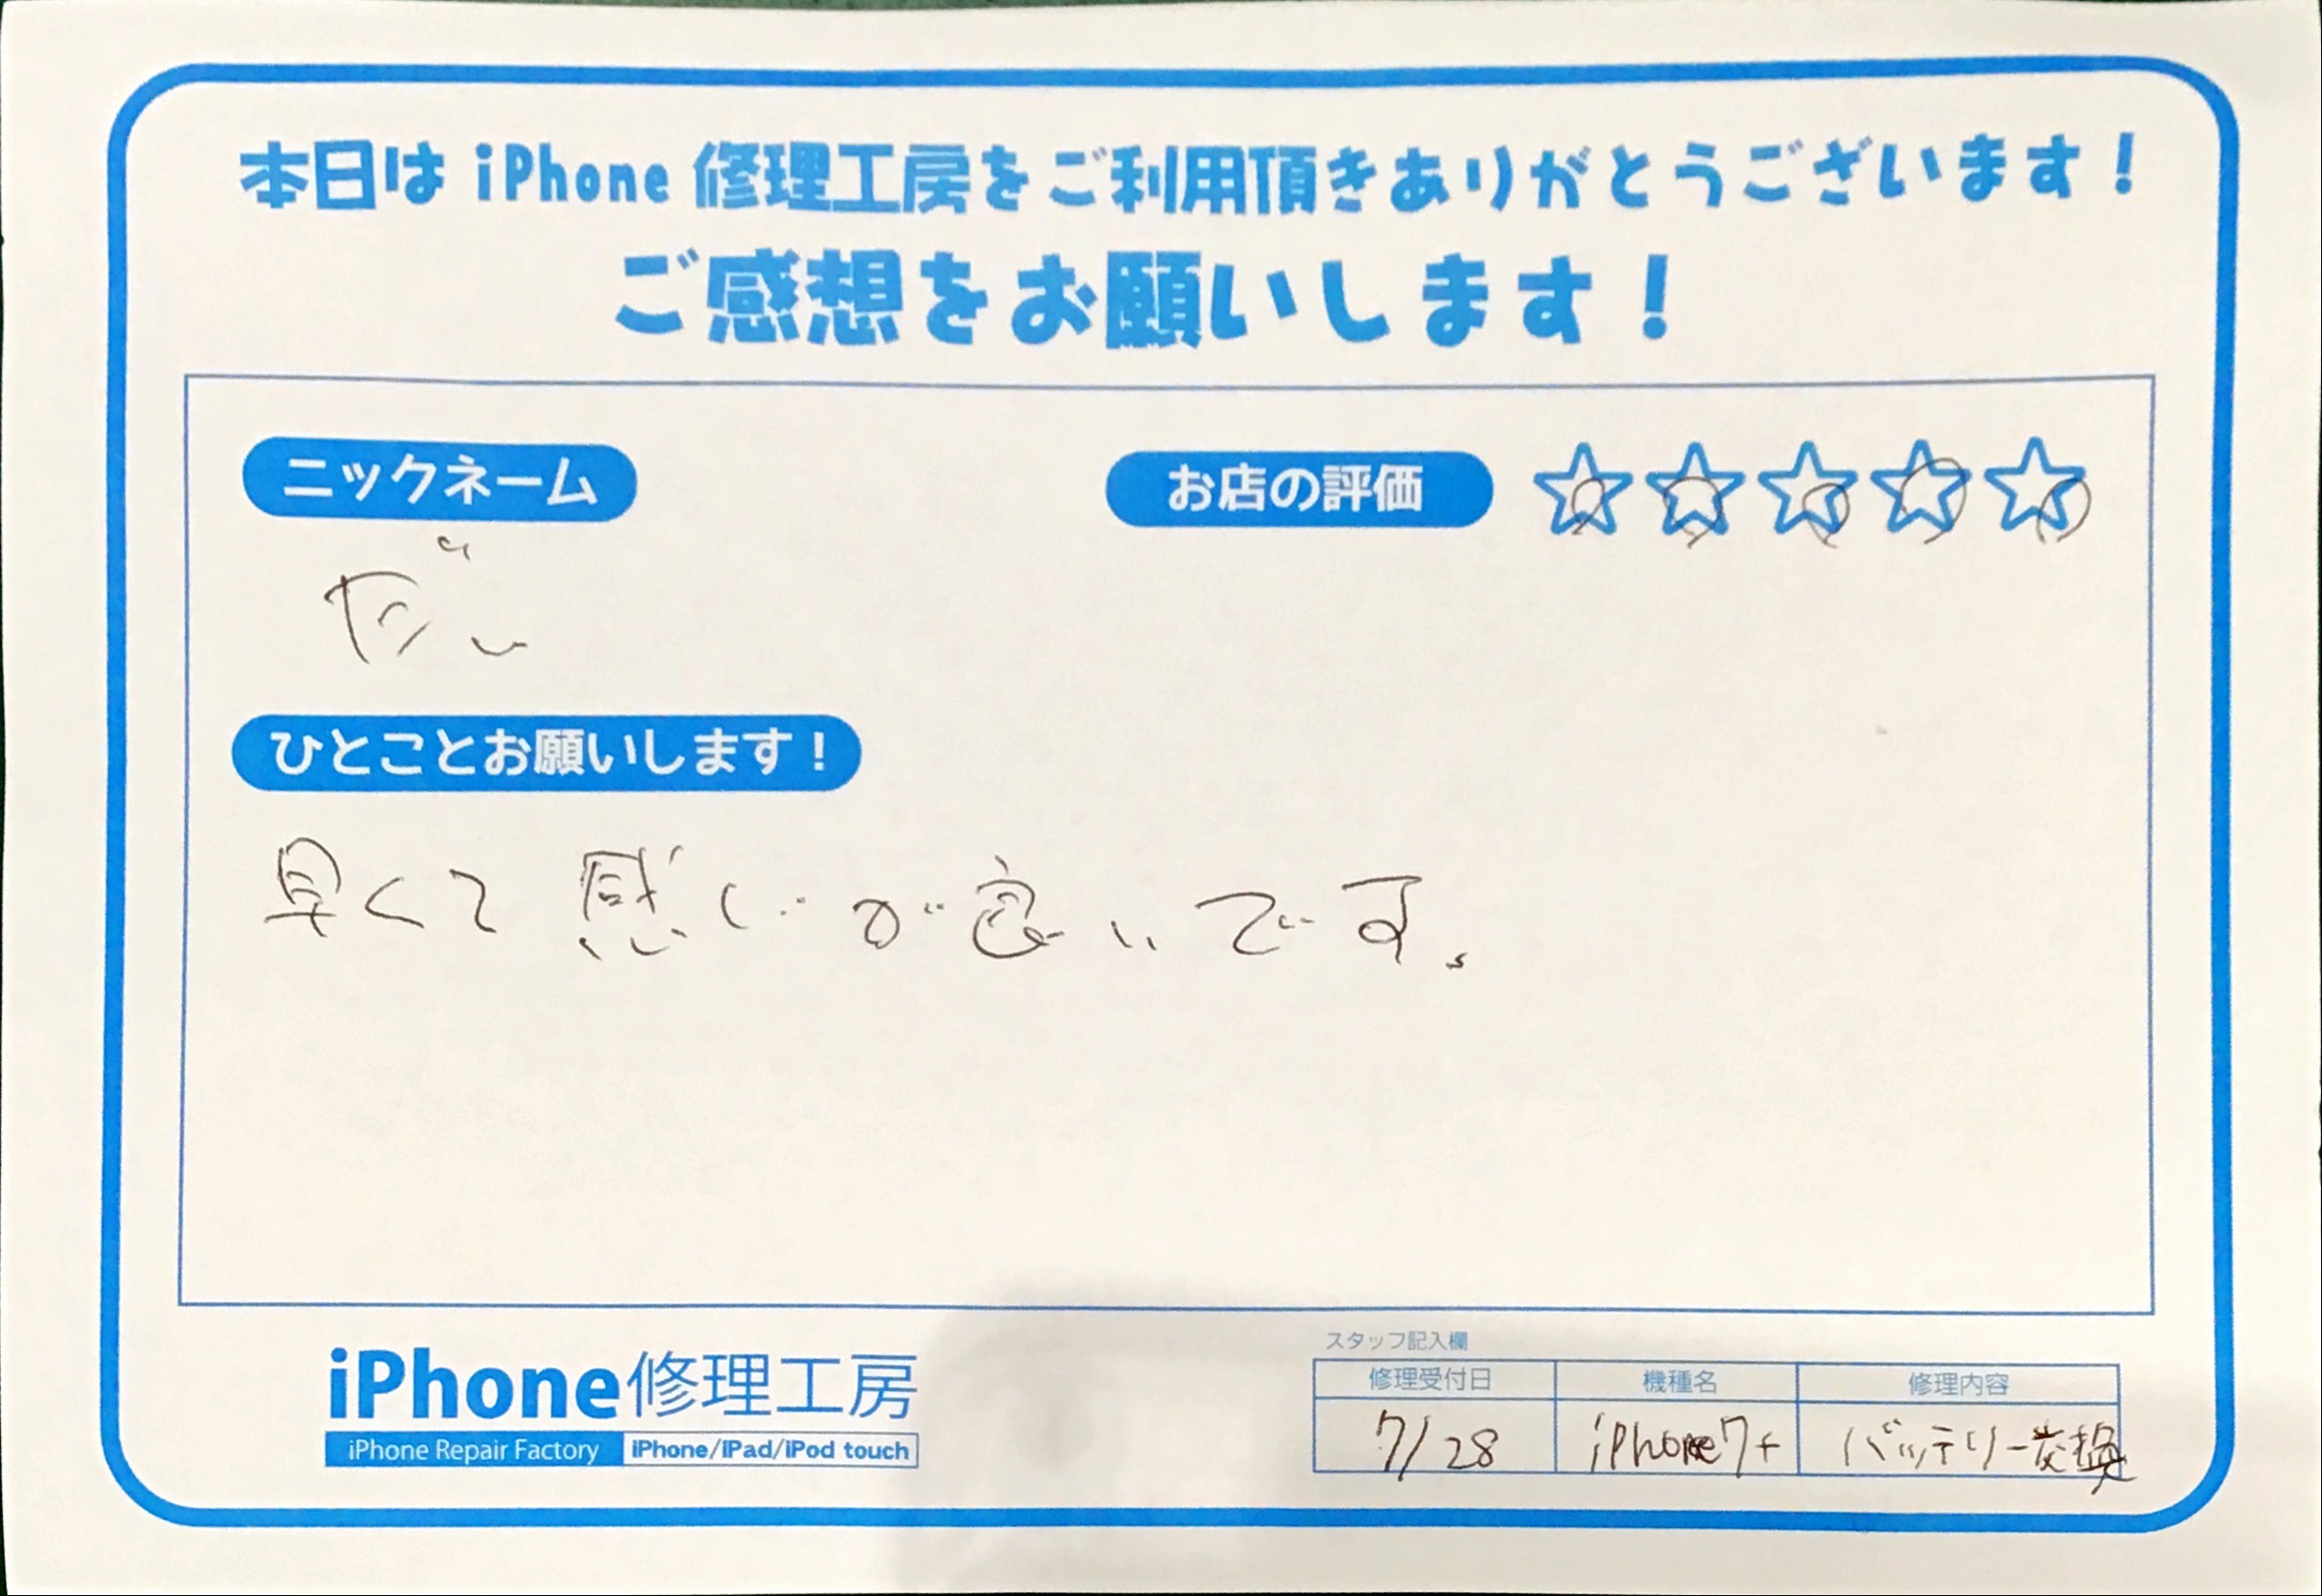 本日は iPhone 修理工房をご利用頂きありがとうございます！
ご感想をお願いします！
ニックネーム
お店の評価
ひとことお願いします！
早くて 感じが良いです。
iPhone修理工房
iPhone Repair Factory iPhone/iPad/iPod touch
スタッフ記入欄
修理受付日 機種名 修理内容
7/28 iPhone7+ バッテリー交換